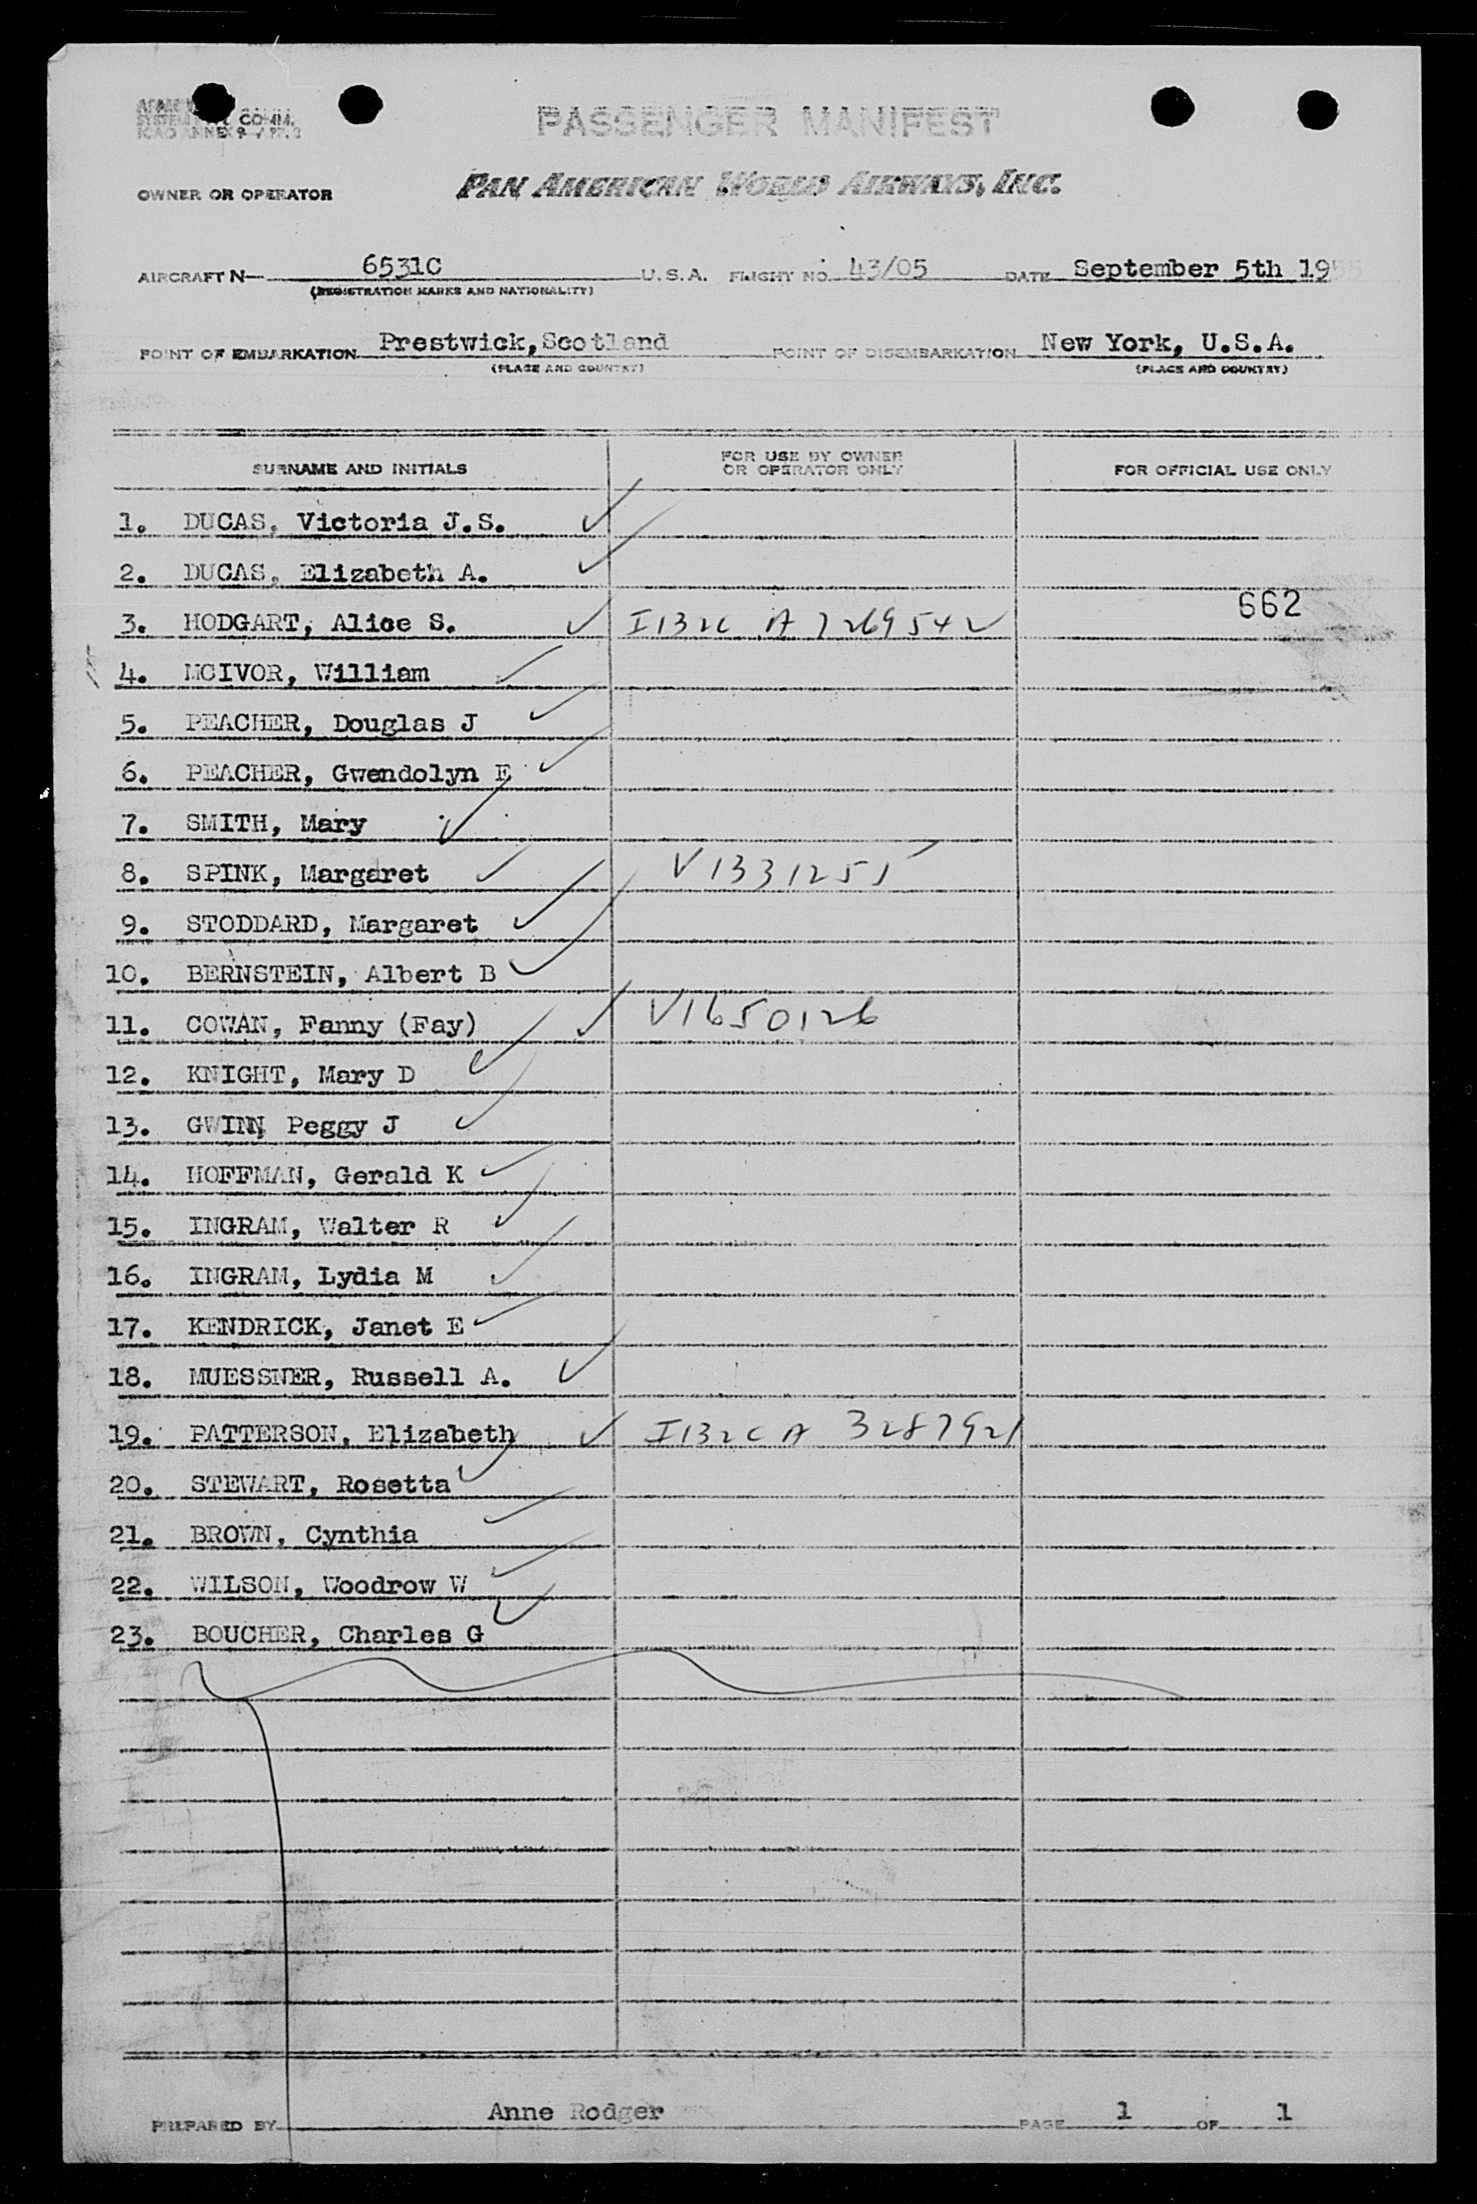 PASSENGER MANIFEST
COMM.
ICAO ANNEX 9
OWNER OR OPERATOR PAN AMERICAN WORLD AIRWAYS, INC.
AIRCRAFT N— 6531C U.S.A. FLIGHT NO. 43/05 DATE September 5th 1955
(REGISTRATION MARKS AND NATIONALITY)
POINT OF EMBARKATION Prestwick, Scotland POINT OF DISEMBARKATION New York, U.S.A.
(PLACE AND COUNTRY) (PLACE AND COUNTRY)
SURNAME AND INITIALS FOR USE BY OWNER OR OPERATOR ONLY FOR OFFICIAL USE ONLY
1. DUCAS, Victoria J.S.
2. DUCAS, Elizabeth A.
662
3. HODGART, Alice S. I132C A 7269542
4. MCIVOR, William
5. PEACHER, Douglas J
6. PEACHER, Gwendolyn E
7. SMITH, Mary
8. SPINK, Margaret V1331255
9. STODDARD, Margaret
10. BERNSTEIN, Albert B
11. COWAN, Fanny (Fay) V1650126
12. KNIGHT, Mary D
13. GWINN, Peggy J
14. HOFFMAN, Gerald K
15. INGRAM, Walter R
16. INGRAM, Lydia M
17. KENDRICK, Janet E
18. MUESSNER, Russell A.
19. PATTERSON, Elizabeth I132C A 3287921
20. STEWART, Rosetta
21. BROWN, Cynthia
22. WILSON, Woodrow W
23. BOUCHER, Charles G
PREPARED BY Anne Rodger PAGE 1 OF 1